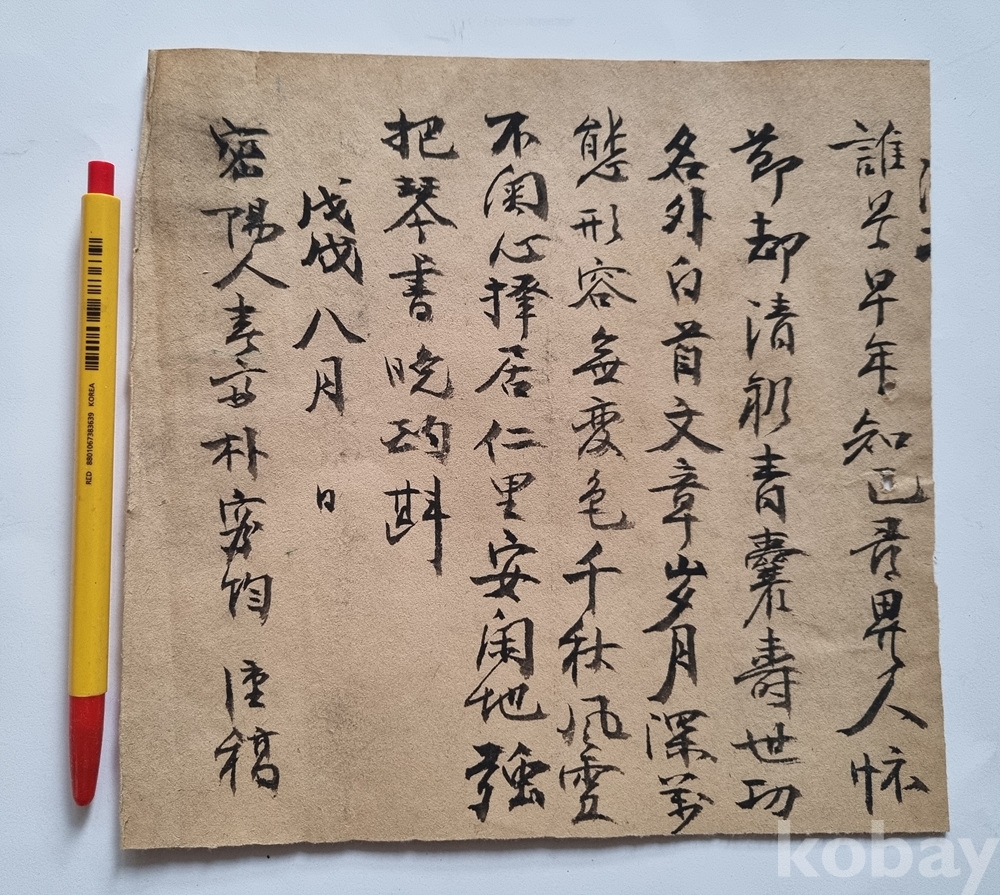 誰是早年知己人
節却清青囊壽世功
名外白首文章岁月深萬
態形容無变色千秋風雲
不関心擇居仁里安閑地強
把琴書晚酌斟
戊戌八月 日
密陽人朴稿
RED 8801067383639 KOREA
kobay